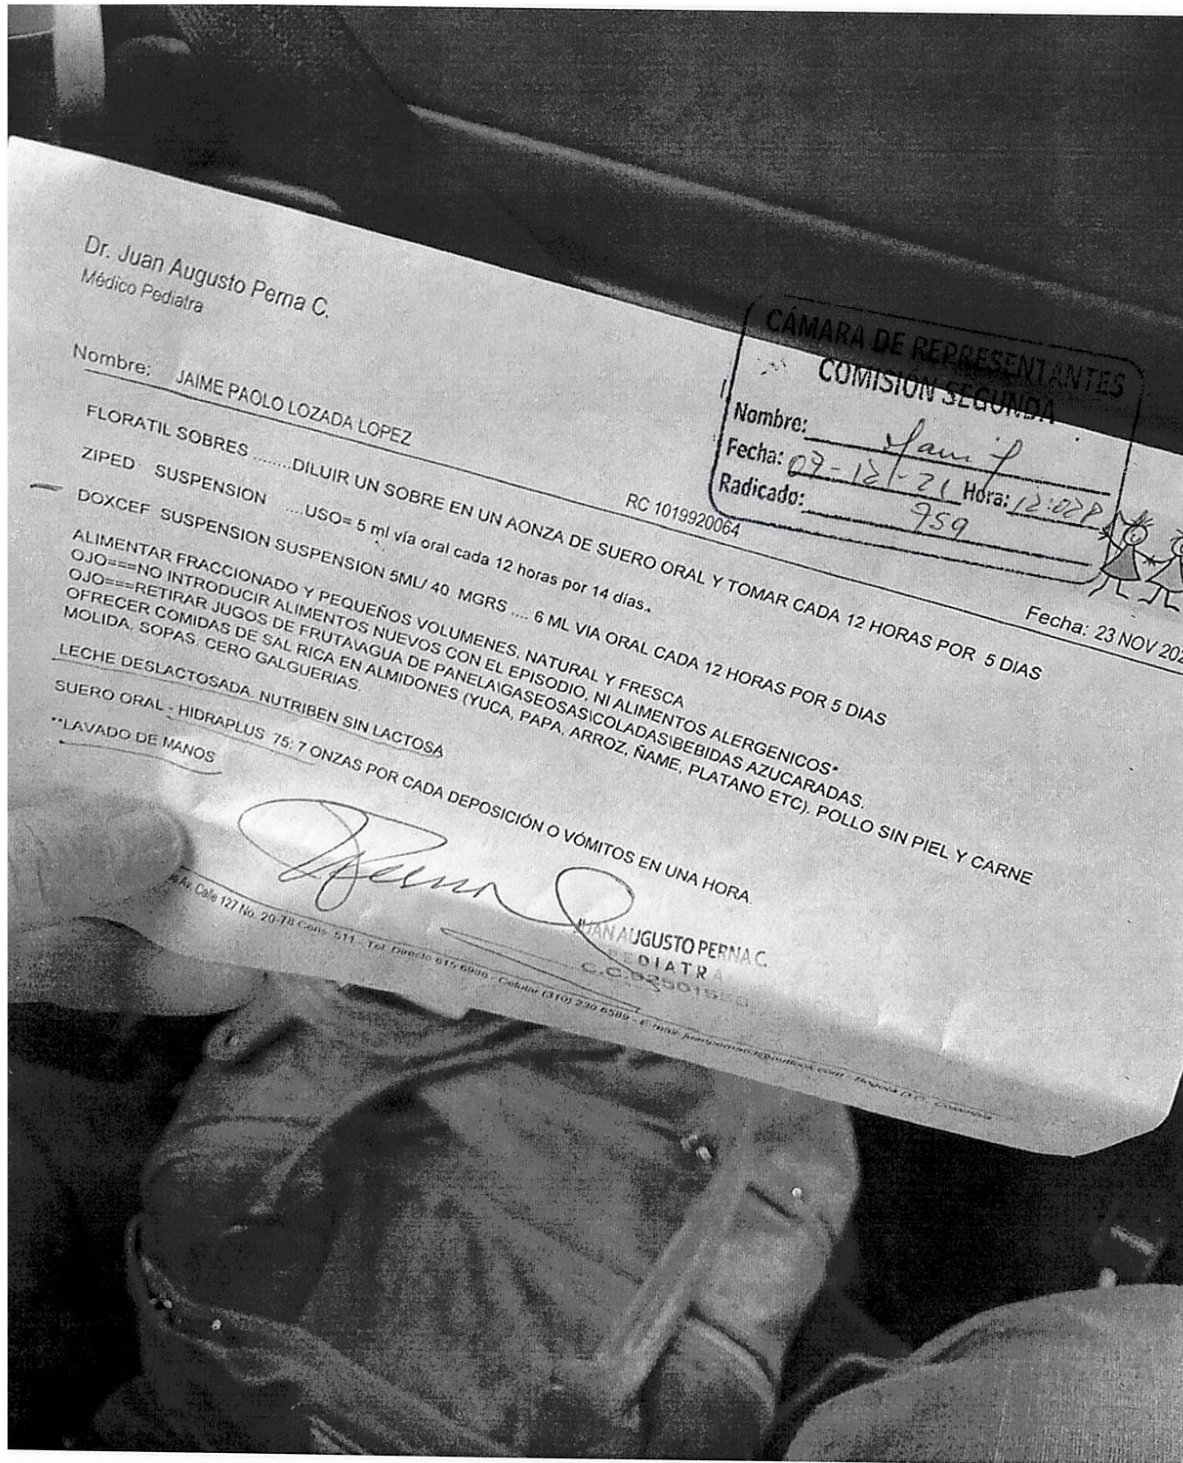 Dr. Juan Augusto Perna C.
Médico Pediatra
CÁMARA DE REPRESENTANTES
COMISIÓN SEGUNDA
Nombre:
Fecha: 07-12-21 Hora: 12:02P
Radicado: 959
Nombre: JAIME PAOLO LOZADA LOPEZ
RC 1019920064
Fecha: 23 NOV 202
FLORATIL SOBRES ........DILUIR UN SOBRE EN UN AONZA DE SUERO ORAL Y TOMAR CADA 12 HORAS POR 5 DIAS
ZIPED SUSPENSION ....USO= 5 ml vía oral cada 12 horas por 14 días.
DOXCEF SUSPENSION SUSPENSION 5ML/ 40 MGRS .... 6 ML VIA ORAL CADA 12 HORAS POR 5 DIAS
ALIMENTAR FRACCIONADO Y PEQUEÑOS VOLUMENES, NATURAL Y FRESCA
OJO===NO INTRODUCIR ALIMENTOS NUEVOS CON EL EPISODIO, NI ALIMENTOS ALERGENICOS*
OJO===RETIRAR JUGOS DE FRUTA\AGUA DE PANELA\GASEOSAS\COLADAS\BEBIDAS AZUCARADAS.
OFRECER COMIDAS DE SAL RICA EN ALMIDONES (YUCA, PAPA, ARROZ, ÑAME, PLATANO ETC). POLLO SIN PIEL Y CARNE
MOLIDA, SOPAS, CERO GALGUERIAS.
LECHE DESLACTOSADA. NUTRIBEN SIN LACTOSA
SUERO ORAL - HIDRAPLUS 75: 7 ONZAS POR CADA DEPOSICIÓN O VÓMITOS EN UNA HORA.
**LAVADO DE MANOS
JPerna
JUAN AUGUSTO PERNA C.
PEDIATRA
C.C.
Av. Calle 127 No. 20-78 Cons. 511 - Tel. Directo 615 6986 - Celular (310) 230 6589 - E-mail: - Bogotá D.C. - Colombia